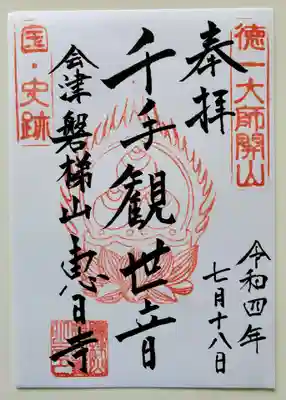 徳一大師開山
奉拝
令和四年
七月十八日
千手観世音
国・史跡
会津磐梯山恵日寺